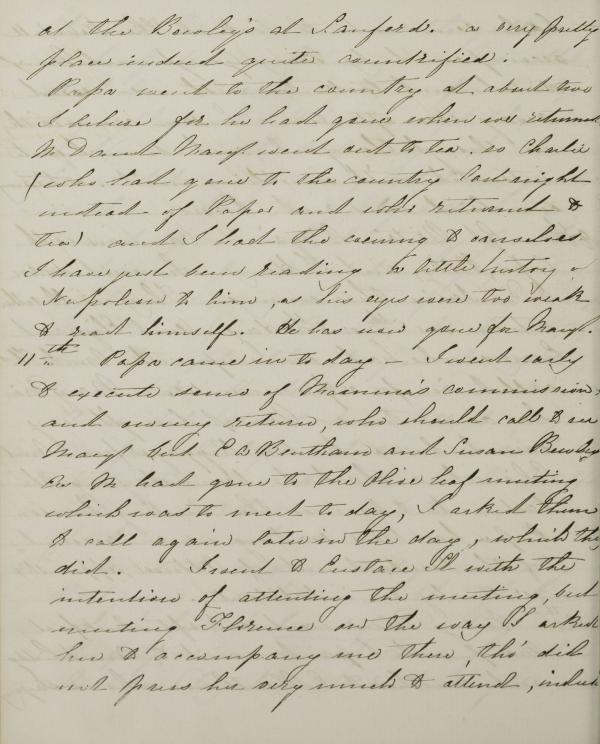 at the Bewley's at Sanford. a very pretty
place indeed quite countrified.
Papa went to the country at about two
I believe for he had gone when we returned
M D and Mary went out to tea. so Charlie
(who had gone to the country last night
instead of Papa and who returned to
tea) and I had the evening to ourselves
I have just been reading a little history of
Napoleon to him, as his eyes were too weak
to read himself. He has now gone for Mary.
11th Papa came in to day – I went early
to execute some of Mamma's commissions
and on my return, who should call to see
Mary but E A Bentham and Susan Bewley
M had gone to the Olive leaf meeting
which was to meet to day, I asked them
to call again later in the day, which they
did. I went to Eustace St with the
intention of attending the meeting, but
meeting Florence on the way I asked
her to accompany me there, tho' did
not press her very much to attend, indeed